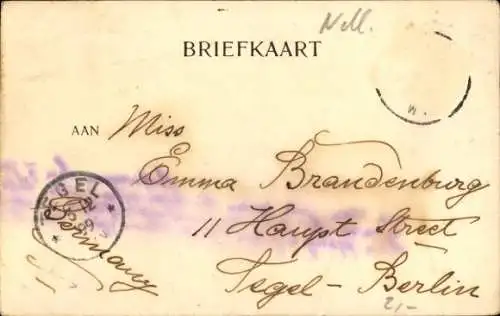 Nell.
BRIEFKAART
AAN Miss
Emma Brandenburg
11 Haupt Street
Tegel - Berlin
Germany
TEGEL
2,-